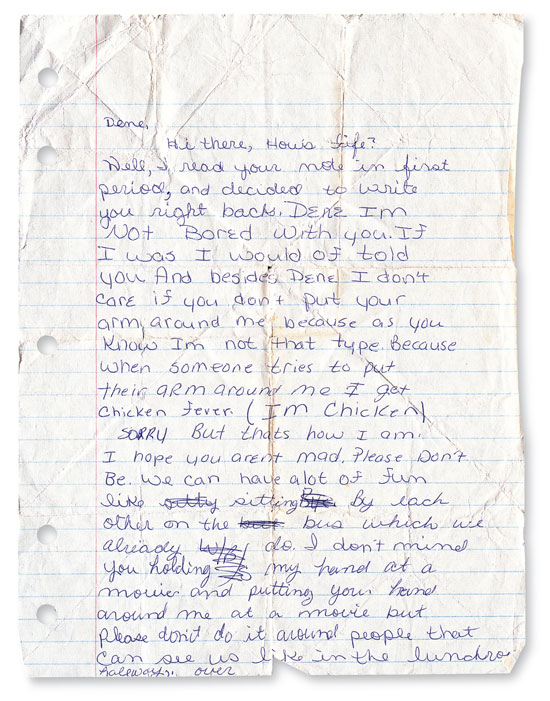 Dene,
Hi there, How's life?
Well, I read your note in first
period, and decided to write
you right back. DENE Im
Not Bored with you. If
I was I would of told
you And besides Dene I don't
care if you don't put your
arm around me because as you
Know Im not that type. Because
when someone tries to put
their arm around me I get
Chicken fever. (Im Chicken)
SORRY But thats how I am.
I hope you arent mad. Please Don't
Be. We can have alot of fun
like sitting By each
other on the bus which we
already do. I don't mind
you holding my hand at a
movie and putting your hand
around me at a movie but
Please don't do it around people that
can see us like in the lunchroo
over